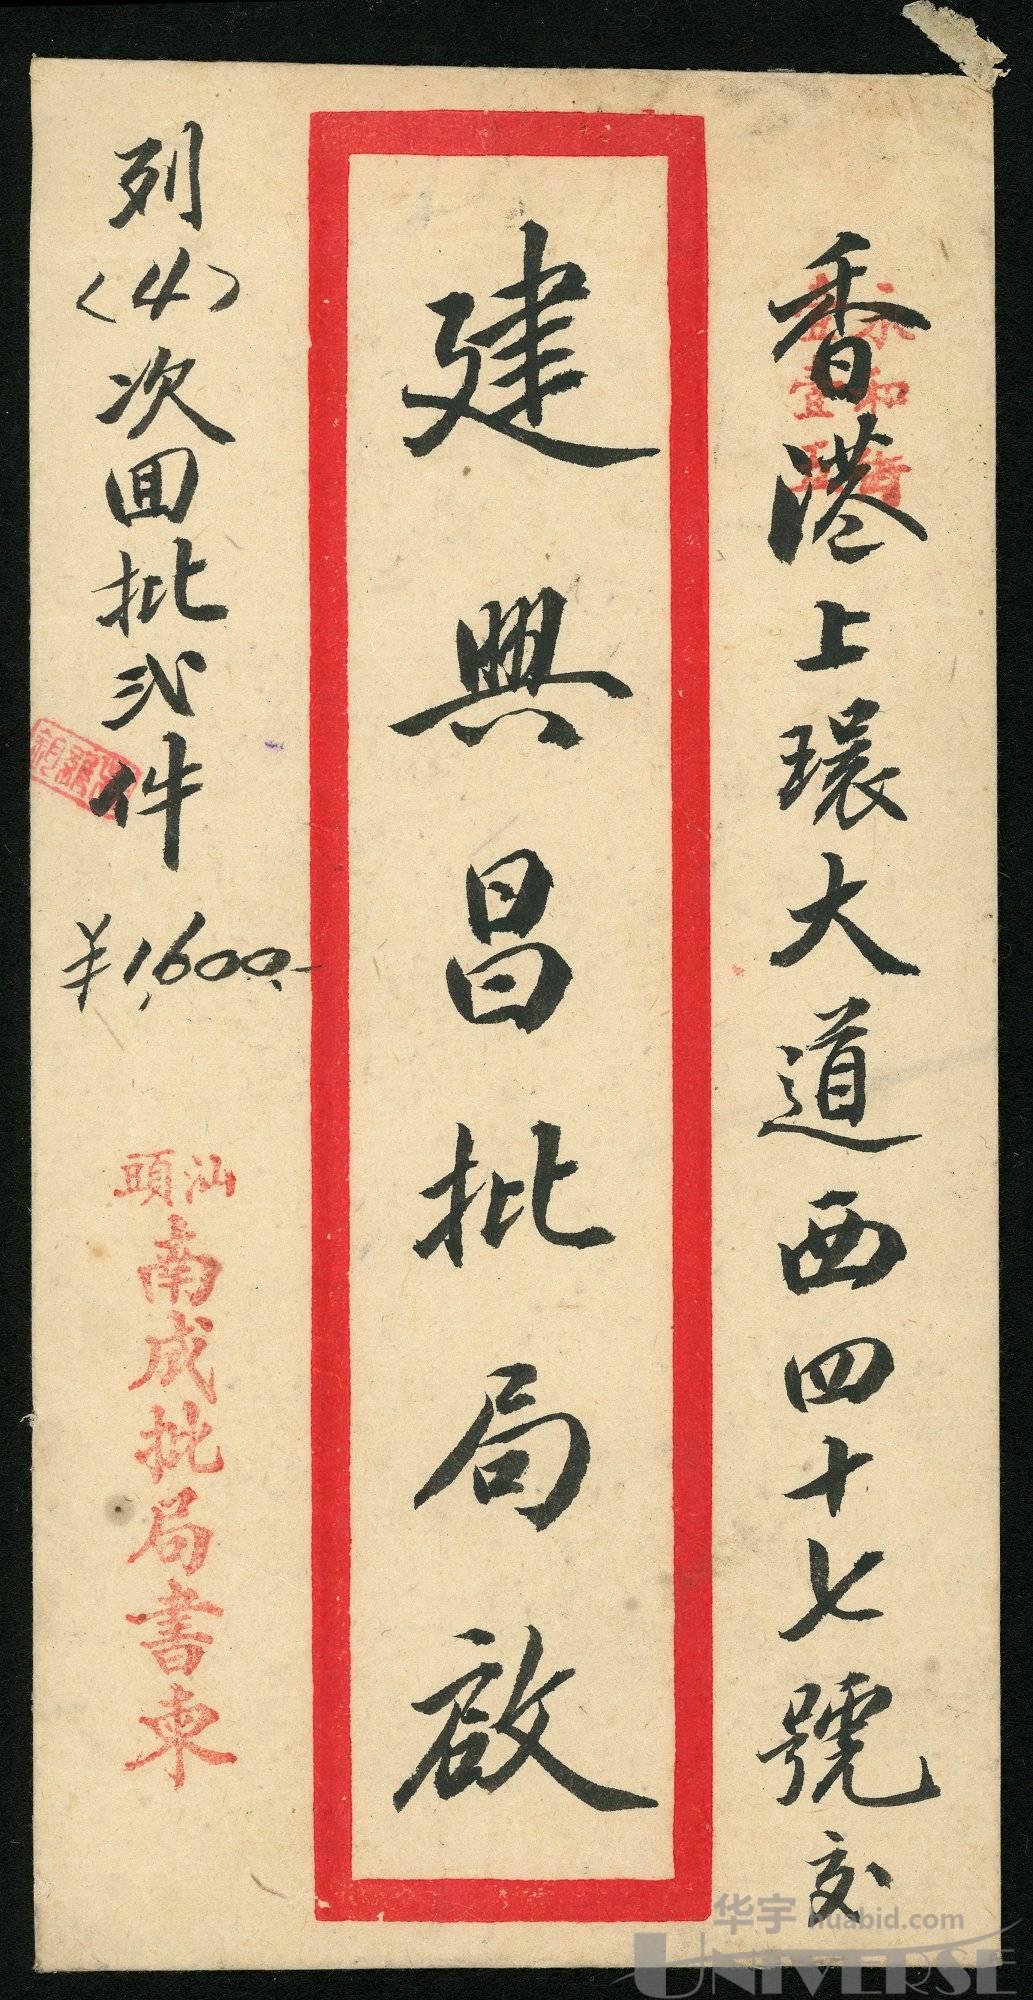 香港上環大道西四十七號交
永和街
建興昌批局啟
列<4>次回批弍件
¥1,600.-
汕頭
南成批局書柬
华宇 huabid.com
UNIVERSE